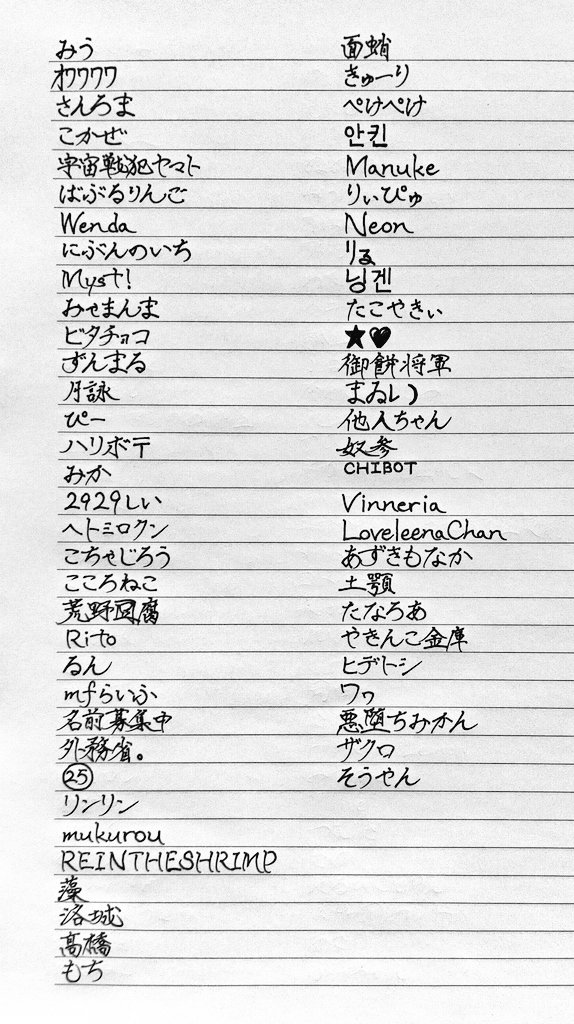 みう
オワワワワ
さんろま
こかぜ
宇宙戦犯ヤマト
ばぶるりんご
Wenda
にぶんのいち
Myst!
おせまんま
ビタチョコ
ずんまる
月詠
ぴー
ハリボテ
みか
2929しい
ヘトミロクン
こちゃじろう
こころねこ
荒野豆腐
Rito
るん
mfらいふ
名前募集中
外務省。
㉕
リンリン
mukurou
REINTHESHRIMP
藻
洛城
高橋
もち
面蛸
きゅーり
ぺけぺけ
안킨
Manuke
りぃぴゅ
Neon
りる
닝겐
たこやきぃ
★♥
御餅将軍
まゐし)
他人ちゃん
奴参
CHIBOT
Vinneria
LoveleenaChan
あずきもなか
土顎
たなろあ
やきんこ金庫
ヒデトシ
ワヮ
悪堕ちみかん
ザクロ
そうやん